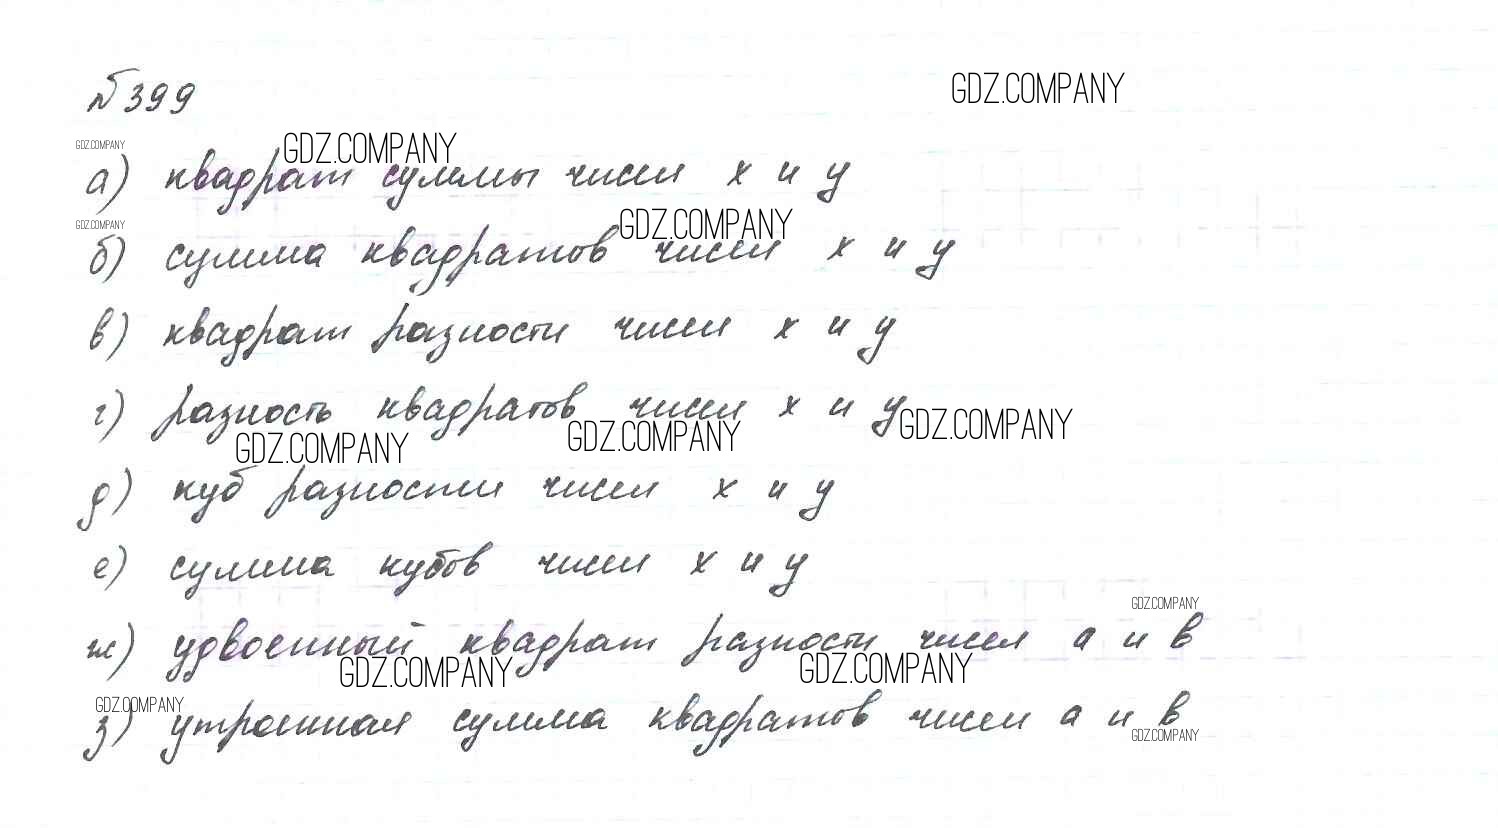 №399
GDZ.COMPANY
GDZ.COMPANY
GDZ.COMPANY
а) квадрат суммы чисел x и y
GDZ.COMPANY
GDZ.COMPANY
б) сумма квадратов чисел x и y
в) квадрат разности чисел x и y
г) разность квадратов чисел x и y
GDZ.COMPANY
GDZ.COMPANY
GDZ.COMPANY
д) куб разности чисел x и y
е) сумма кубов чисел x и y
GDZ.COMPANY
ж) удвоенный квадрат разности чисел a и b
GDZ.COMPANY
GDZ.COMPANY
GDZ.COMPANY
з) утроенная сумма квадратов чисел a и b
GDZ.COMPANY